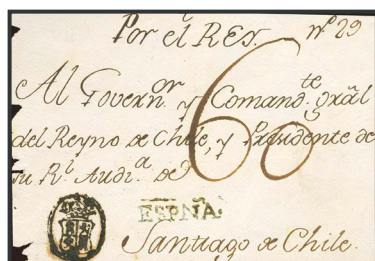 Por el REY. nº 29
60
Al Governor. y Comandte. gräl
del Reyno de Chile, y Presidente de
su Rl. Audia. de
ESPÑA.
Santiago de Chile.